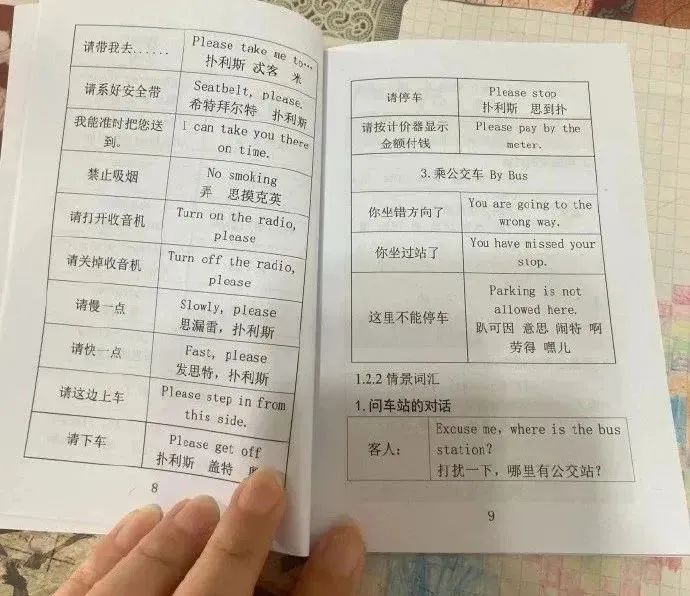 请带我去......
Please take me to…
扑利斯 忒客 米
请系好安全带
Seatbelt, please.
希特拜尔特 扑利斯
我能准时把您送
到。
I can take you there
on time.
禁止吸烟
No smoking
弄 思摸克英
请打开收音机
Turn on the radio,
please
请关掉收音机
Turn off the radio,
please
请慢一点
Slowly, please
思漏雷，扑利斯
请快一点
Fast, please
发思特，扑利斯
请这边上车
Please step in from
this side.
请下车
Please get off
扑利斯 盖特
8
请停车
Please stop
扑利斯 思到扑
请按计价器显示
金额付钱
Please pay by the
meter.
3. 乘公交车 By Bus
你坐错方向了
You are going to the
wrong way.
你坐过站了
You have missed your
stop.
这里不能停车
Parking is not
allowed here.
趴可因 意思 闹特 啊
劳得 嘿儿
1.2.2 情景词汇
1. 问车站的对话
客人：
Excuse me, where is the bus
station?
打扰一下，哪里有公交站？
9